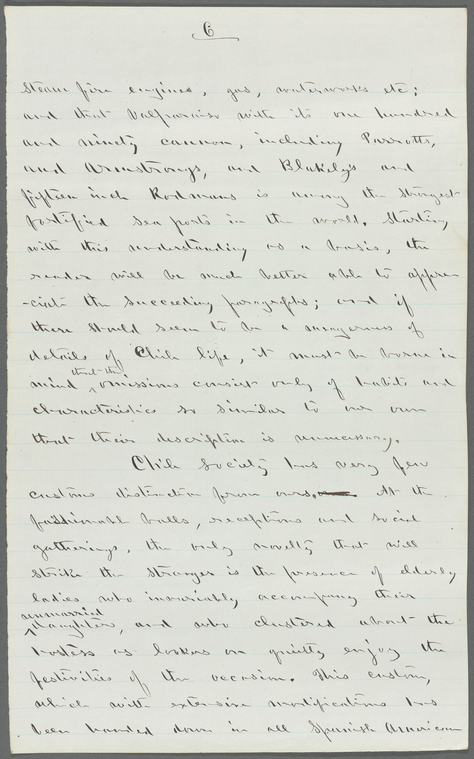 6
Steam fire engines, gas, waterworks etc;
and that Valparaiso with its one hundred
and ninety cannon, including Parrotts,
and Armstrongs, and Blakelys and
fifteen inch Rodmans is among the strongest
fortified sea ports in the world. Starting
with this understanding as a basis, the
reader will be much better able to appre
-ciate the succeeding paragraphs; and if
there should seem to be a meagerness of
details of Chile life, it must be borne in
mind that the omissions consist only of habits and
characteristics so similar to our own
that their description is unnecessary.
Chile Society has very few
customs distinction from ours. At the
fashionable balls, receptions and social
gatherings, the only novelty that will
strike the stranger is the presence of elderly
ladies who invariably accompany their
unmarried
daughters, and who clustered about the
hostess as lookers on quietly enjoy the
festivities of the occasion. This custom,
which with extensive modifications has
been handed down in all Spanish American